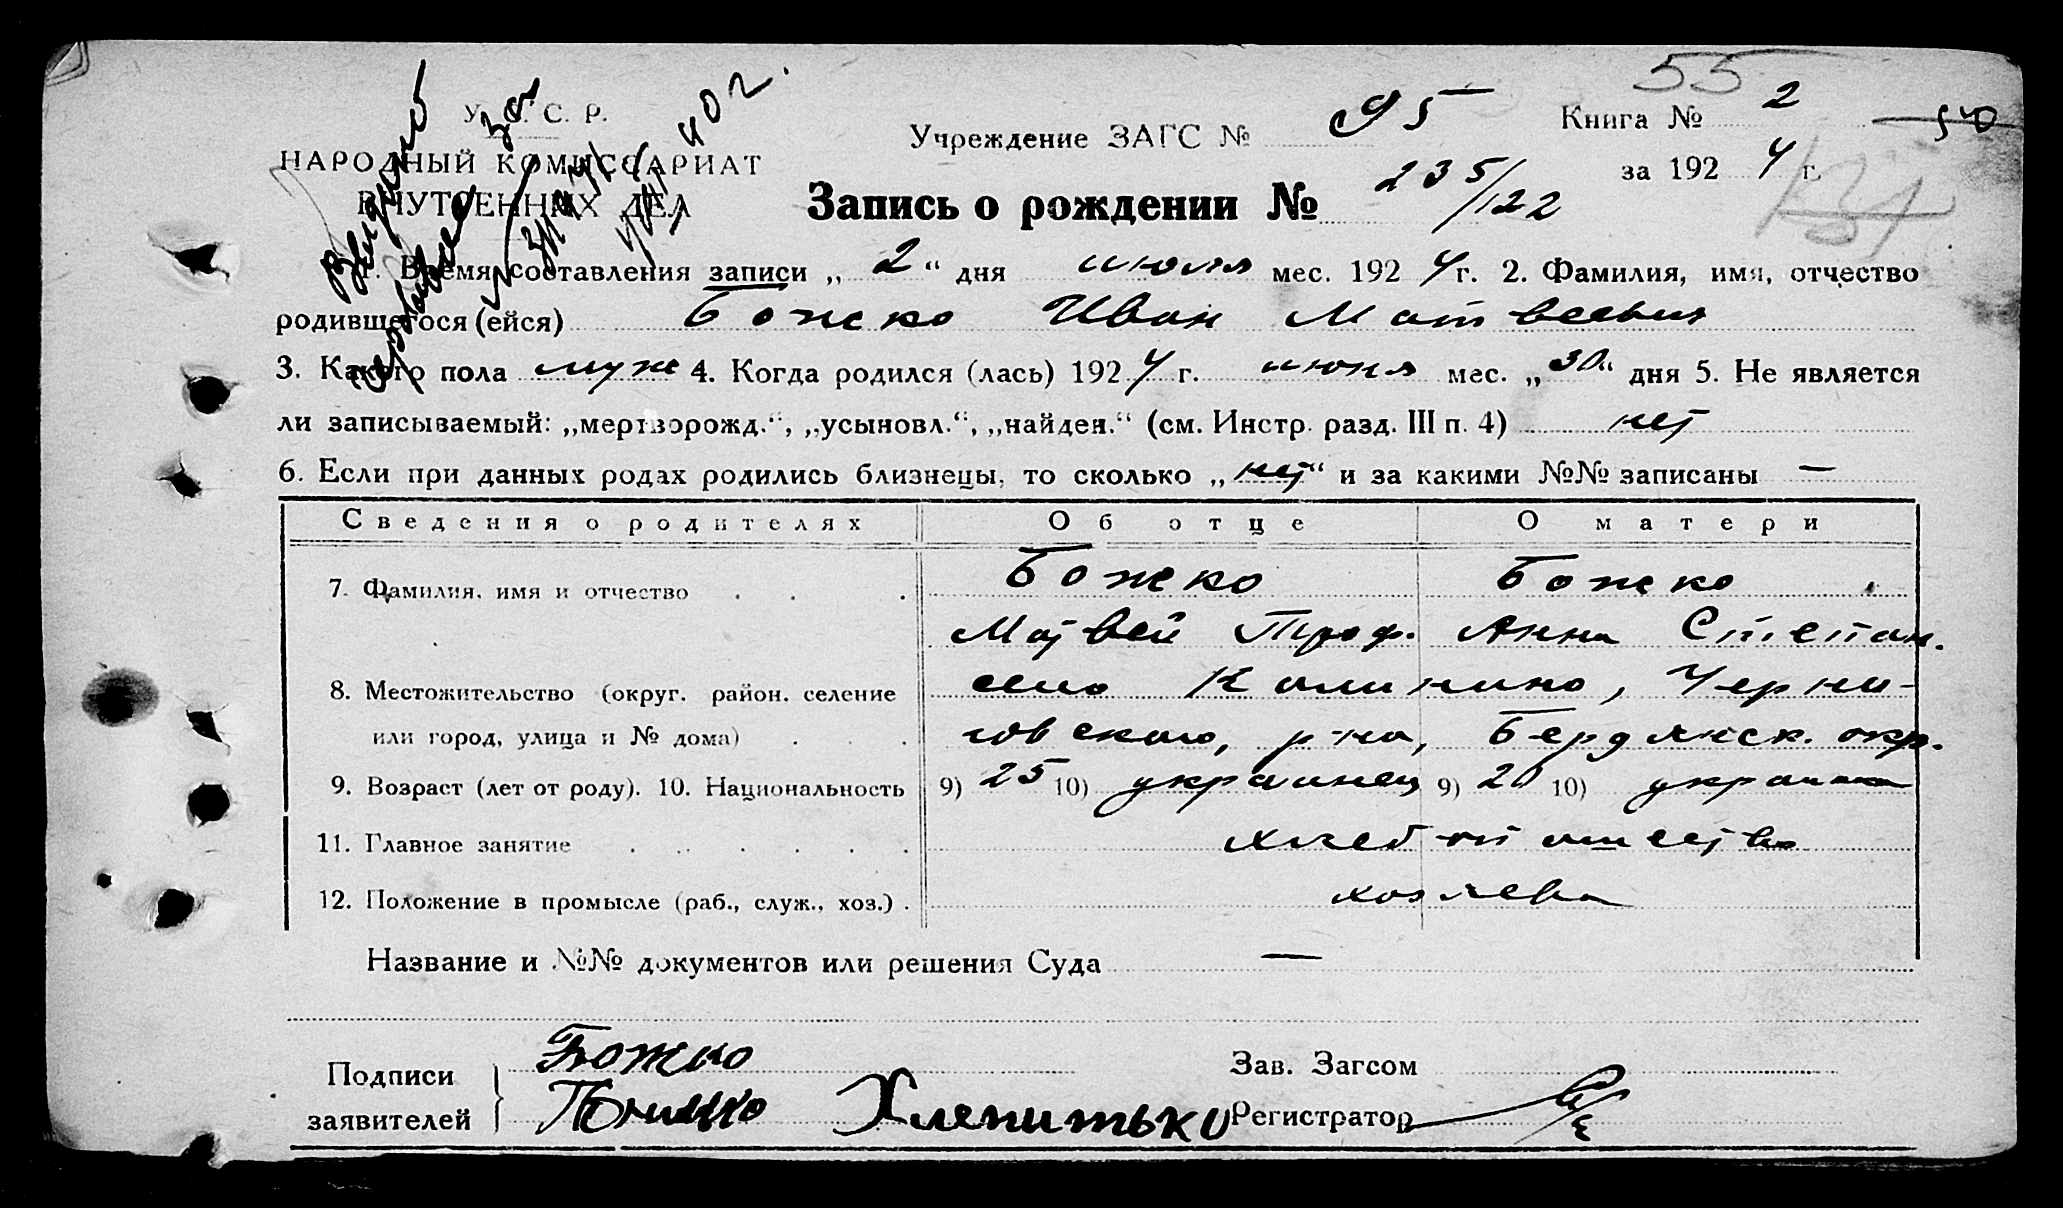 55
У. С. С. Р.
НАРОДНЫЙ КОМИССАРИАТ
ВНУТРЕННИХ ДЕЛ
Учреждение ЗАГС № 95
Книга № 2
50
за 1924 г.
Запись о рождении № 235/122
Выдано
за
40 г.
1. Время составления записи „2“ дня июля мес. 1924 г. 2. Фамилия, имя, отчество
родившегося (ейся) Божко Иван Матвеевич
3. Какого пола муж 4. Когда родился (лась) 1924 г. июня мес. „30“ дня 5. Не является
ли записываемый: „мертворожд.“, „усыновл.“, „найден.“ (см. Инстр. разд. III п. 4) нет
6. Если при данных родах родились близнецы, то сколько „нет“ и за какими №№ записаны —
Сведения о родителях Об отце О матери
7. Фамилия, имя и отчество Божко Божко
Матвей Троф. Анна Степан.
8. Местожительство (округ. район. селение село Калинино, Черни-
или город, улица и № дома) говского, р-на, Бердянск. окр.
9. Возраст (лет от роду). 10. Национальность 9) 25 10) украинец 9) 20 10) украинка
11. Главное занятие хлебопашество
12. Положение в промысле (раб., служ., хоз.) хозяева
Название и №№ документов или решения Суда —
Подписи
заявителей
Божко
Зав. Загсом
Регистратор